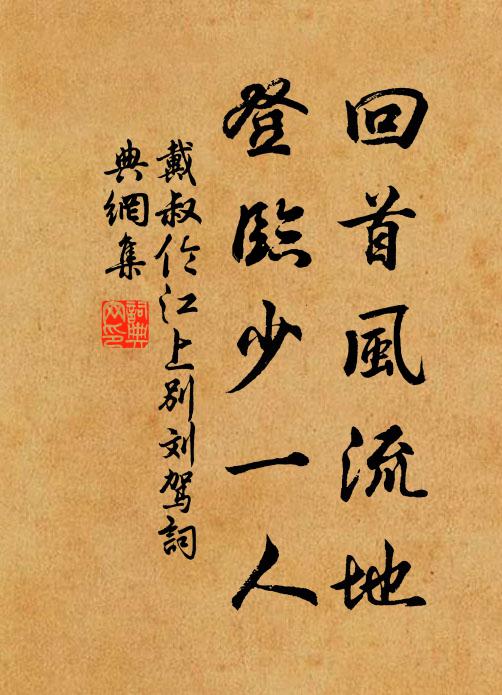 回首風流地
登臨少一人
戴叔伦江上別刘駕詞
典網集
詞典
网印